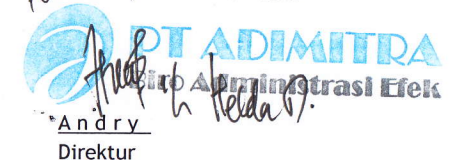 PT ADIMITRA
Biro Administrasi Efek
Helda M.
Andry
Direktur